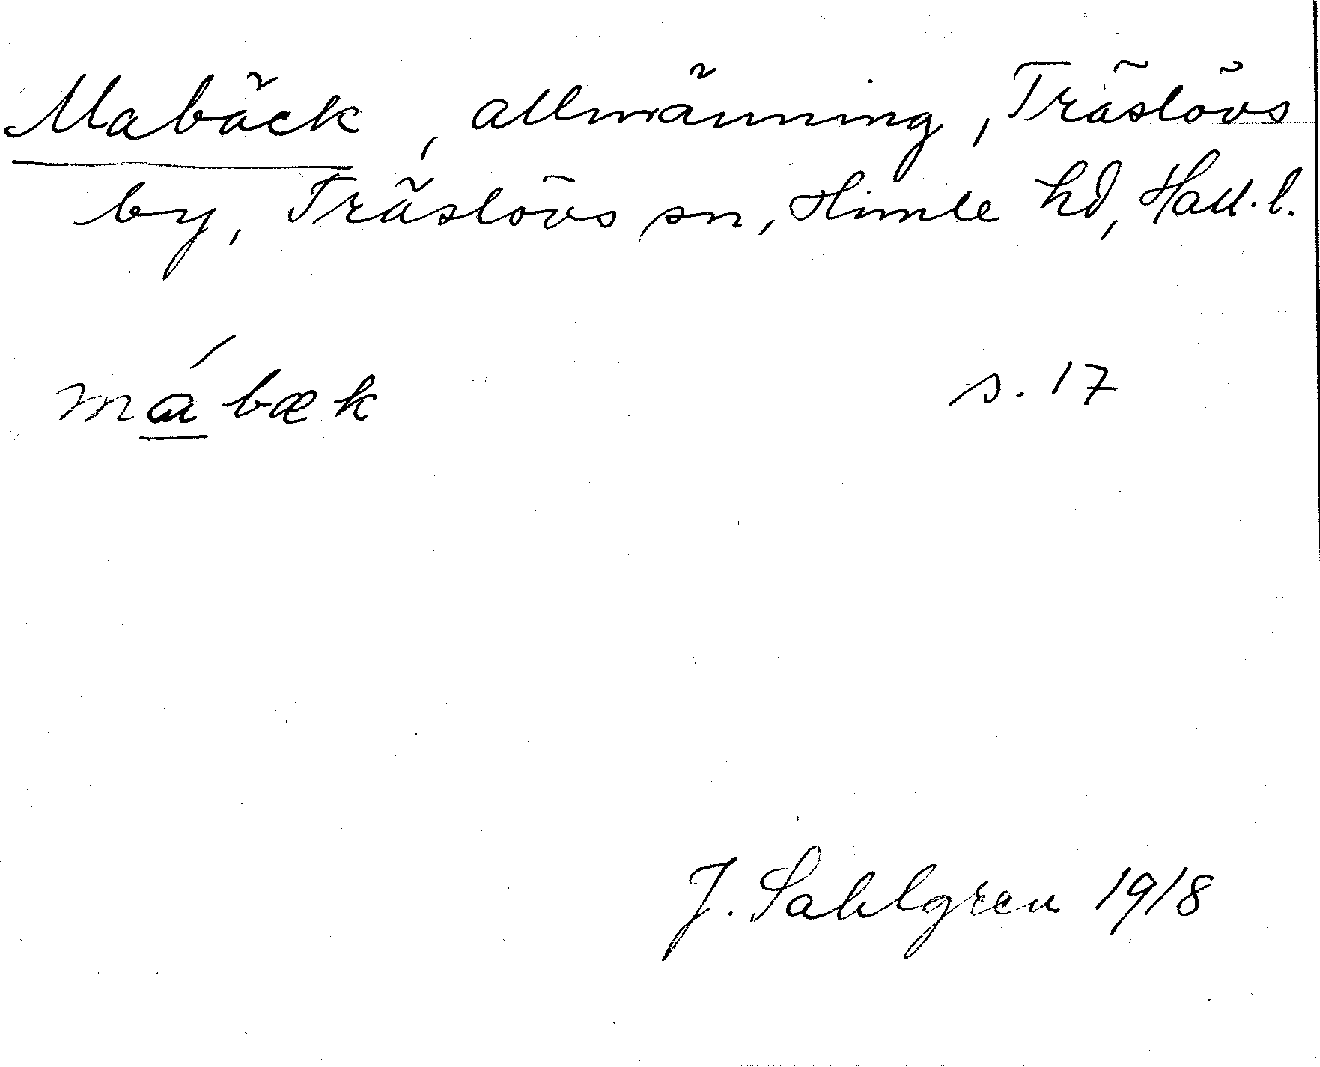 Mabäck, allmänning, Träslövs
by, Träslövs sn, Himle hd, Hall. l.
mábæk s. 17
J. Sahlgren 1918